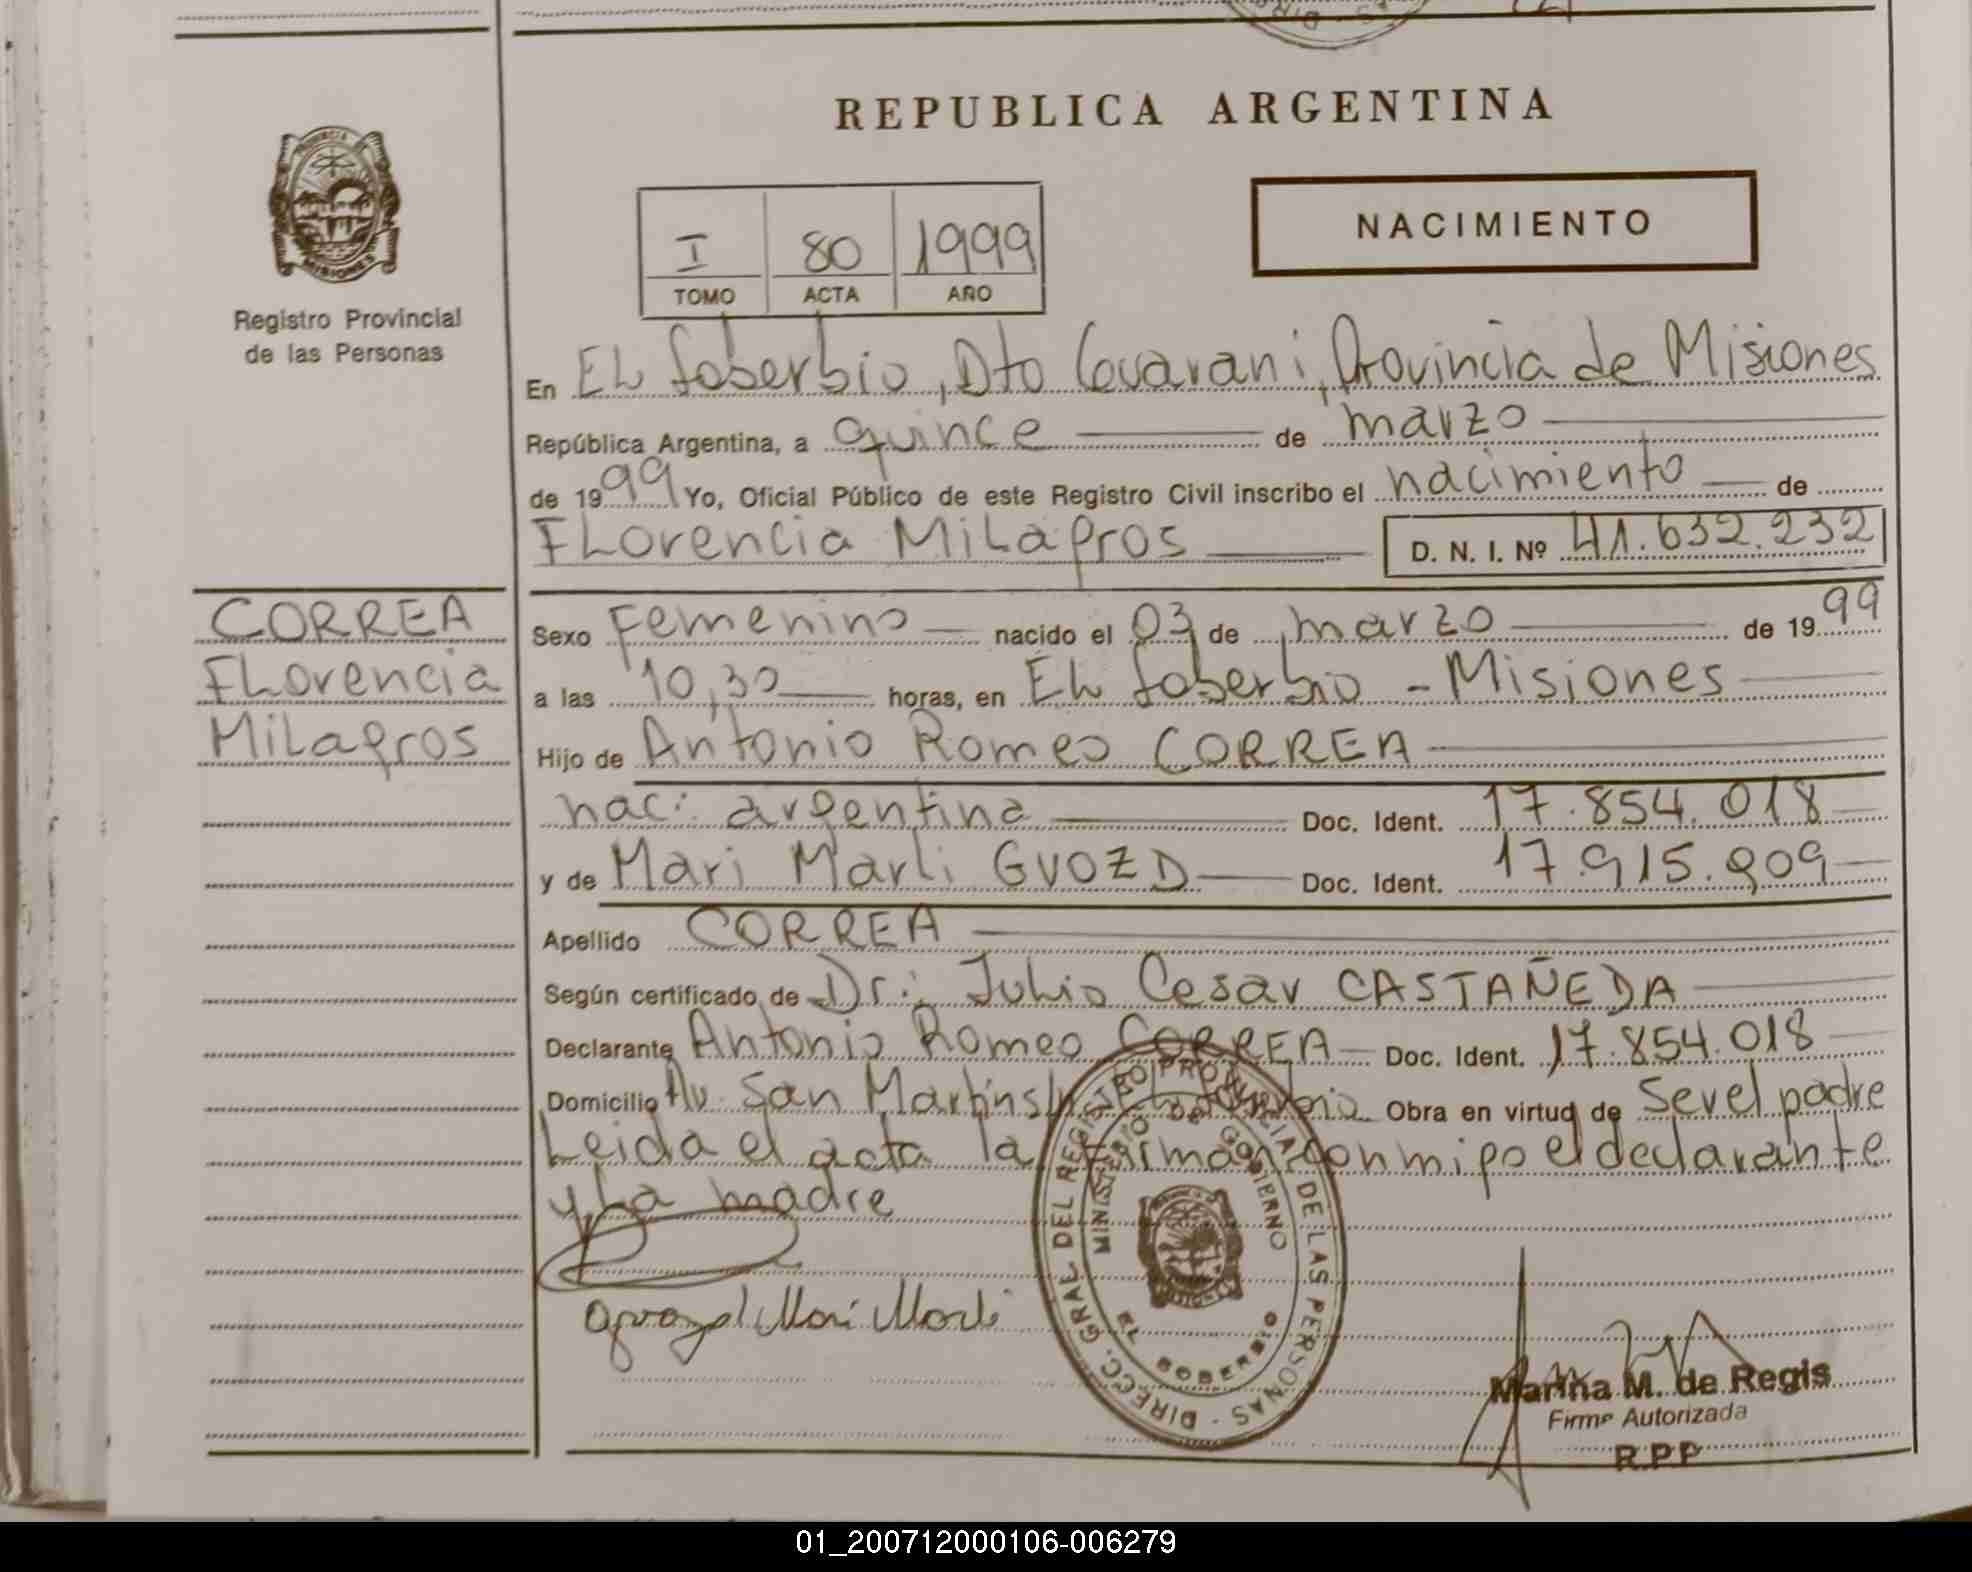 REPUBLICA ARGENTINA
PROVINCIA
MISIONES
Registro Provincial
de las Personas
I 80 1999
TOMO ACTA AÑO
NACIMIENTO
En El Soberbio, Dto Guarani, Provincia de Misiones
República Argentina, a quince de marzo
de 1999 Yo, Oficial Público de este Registro Civil inscribo el nacimiento de
Florencia Milagros D. N. I. Nº 41.632.232
CORREA
Florencia
Milagros
Sexo Femenino nacido el 03 de marzo de 1999
a las 10,30 horas, en El Soberbio - Misiones
Hijo de Antonio Romeo CORREA
nac: argentina Doc. Ident. 17.854.018
y de Mari Marli GVOZD Doc. Ident. 17.915.909
Apellido CORREA
Según certificado de Dr: Julio Cesar CASTAÑEDA
Declarante Antonio Romeo CORREA Doc. Ident. 17.854.018
Domicilio Av. San Martin s/n El Soberbio Obra en virtud de Ser el padre
Leida el acta la firman conmigo el declarante
y La madre
DIRECC. GRAL DEL REGISTRO PROVINCIAL DE LAS PERSONAS
MINISTERIO DE GOBIERNO
EL SOBERBIO
Mari Marli
Marina M. de Regis
Firma Autorizada
R.P.P
01_200712000106-006279